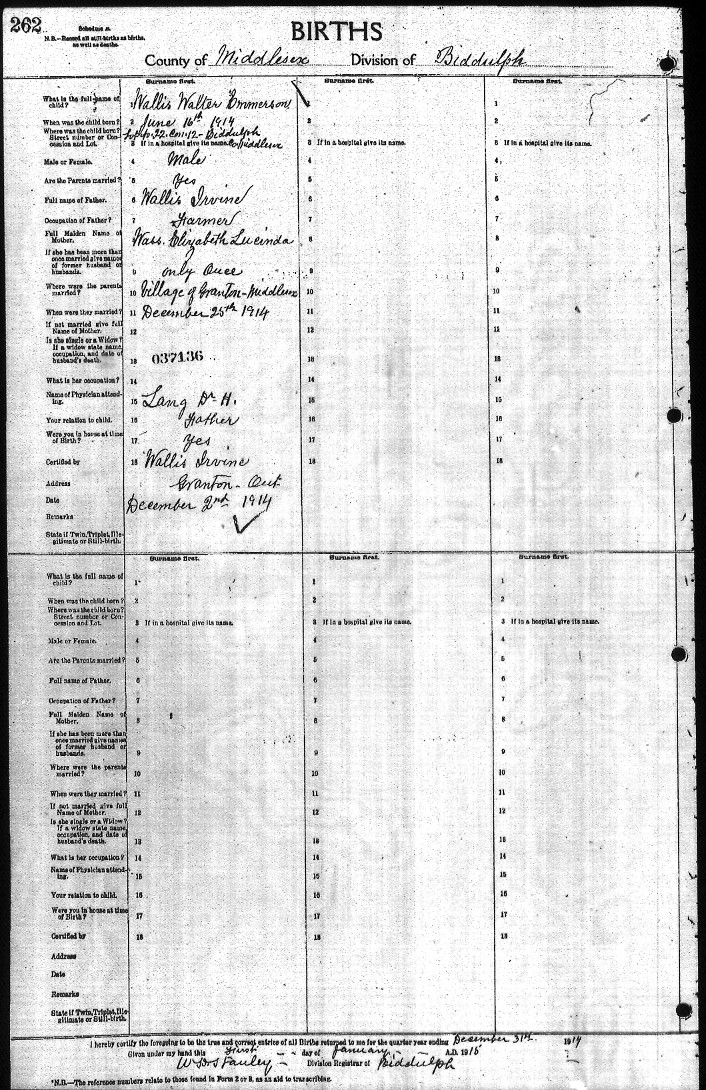 262
Schedule A.
N.B.—Record all still-births as births, as well as deaths.
BIRTHS
County of Middlesex Division of Biddulph
Surname first. Surname first. Surname first.
What is the full name of child? 1 Wallis Walter Emmerson 1 1
When was the child born? 2 June 16th 1914 2 2
Where was the child born? Street number or Concession and Lot. 3 If in a hospital give its name. 22. Con. 12 - Biddulph Co Middlesex 3 If in a hospital give its name. 3 If in a hospital give its name.
Male or Female. 4 Male 4 4
Are the Parents married? 5 Yes 5 5
Full name of Father. 6 Wallis Irvine 6 6
Occupation of Father? 7 Farmer 7 7
Full Maiden Name of Mother. 8 Wass. Elizabeth Lucinda 8 8
If she has been more than once married give names of former husband or husbands. 9 only Once 9 9
Where were the parents married? 10 Village of Granton - Middlesex 10 10
When were they married? 11 December 25th 1914 11 11
If not married give full Name of Mother. 12 12 12
Is she single or a Widow? If a widow state name, occupation, and date of husband's death. 13 037136 13 13
What is her occupation? 14 14 14
Name of Physician attending. 15 Lang Dr H. 15 15
Your relation to child. 16 Father 16 16
Were you in house at time of Birth? 17 Yes 17 17
Certified by 18 Wallis Irvine 18 18
Address Granton - Ont
Date December 2nd 1914
Remarks
State if Twin, Triplet, Illegitimate or Still-birth.
Surname first. Surname first. Surname first.
What is the full name of child? 1 1 1
When was the child born? 2 2 2
Where was the child born? Street number or Concession and Lot. 3 If in a hospital give its name. 3 If in a hospital give its name. 3 If in a hospital give its name.
Male or Female. 4 4 4
Are the Parents married? 5 5 5
Full name of Father. 6 6 6
Occupation of Father? 7 7 7
Full Maiden Name of Mother. 8 8 8
If she has been more than once married give names of former husband or husbands. 9 9 9
Where were the parents married? 10 10 10
When were they married? 11 11 11
If not married give full Name of Mother. 12 12 12
Is she single or a Widow? If a widow state name, occupation, and date of husband's death. 13 13 13
What is her occupation? 14 14 14
Name of Physician attending. 15 15 15
Your relation to child. 16 16 16
Were you in house at time of Birth? 17 17 17
Certified by 18 18 18
Address
Date
Remarks
State if Twin, Triplet, Illegitimate or Still-birth.
I hereby certify the foregoing to be the true and correct entries of all Births returned to me for the quarter year ending December 31st 1914
Given under my hand this First day of January A.D. 1915
Division Registrar of Biddulph
*N.B.—The reference numbers relate to those found in Form 2 or B, as an aid to transcribing.